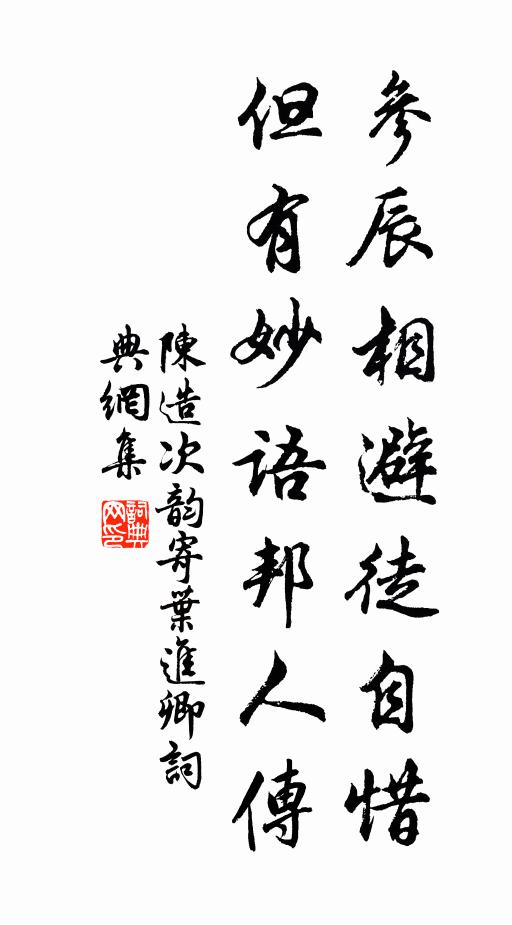 參辰相避徒自惜
但有妙語邦人傳
陳造次韵寄葉進卿詞
典網集
詞典网印